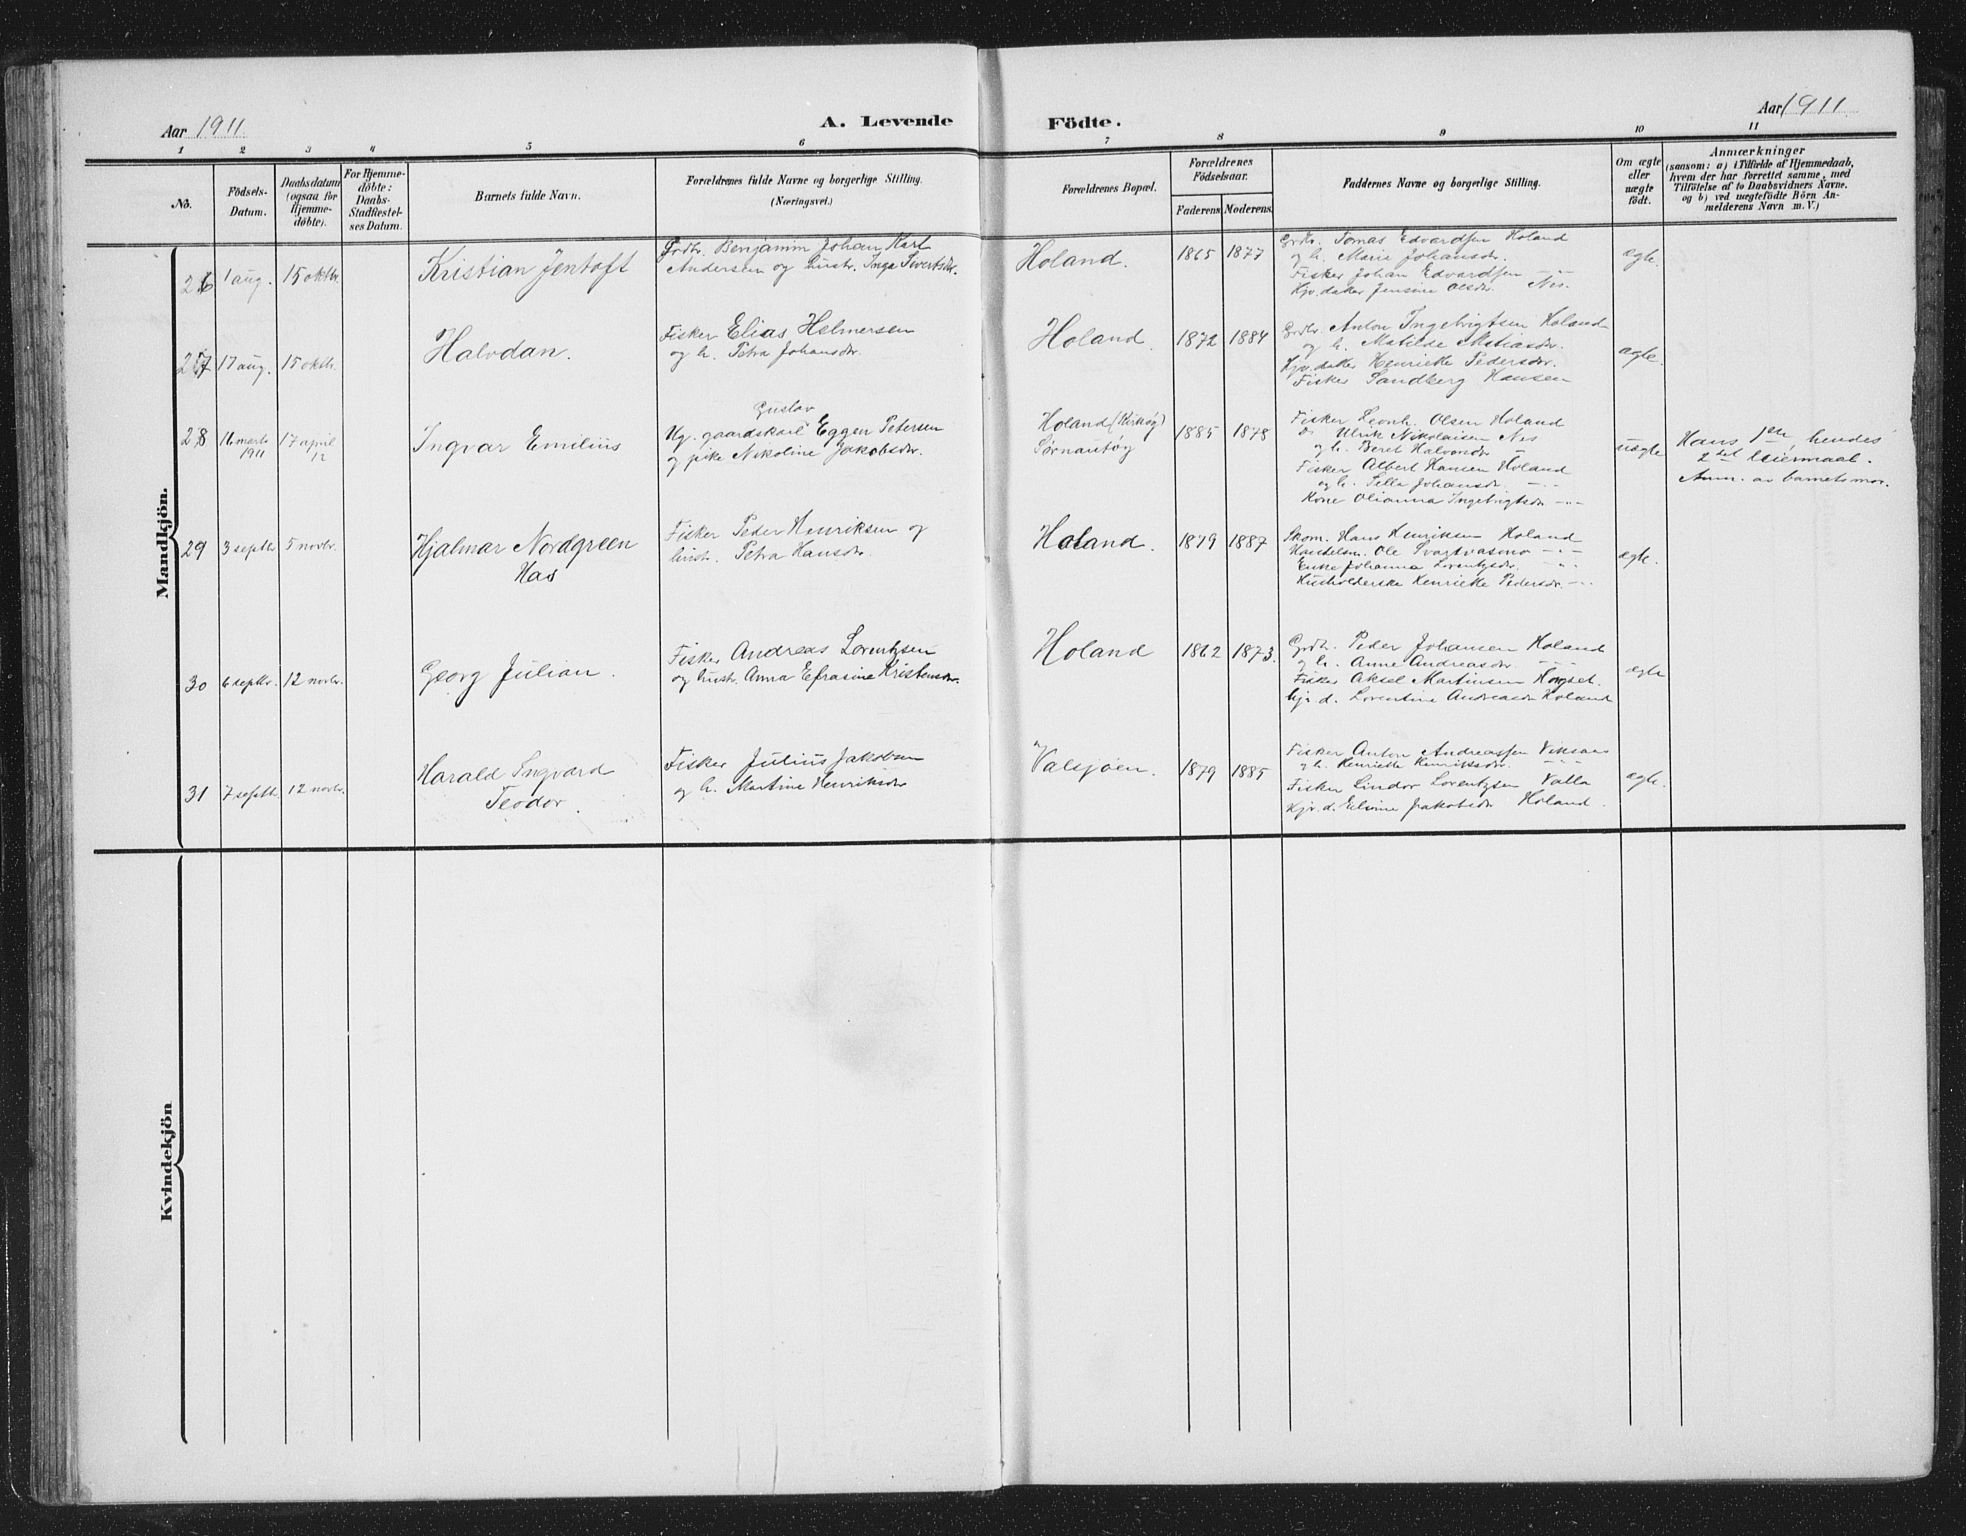 Aar 1911
A. Levende
Födte.
Aar 1911
1 2 3 4 5 6 7 8 9 10 11
No.
Födsels-
Datum.
Daabsdatum
(ogsaa for
Hjemme-
döbte).
For Hjemme-
döbte:
Daabs-
Stadfæstel-
ses Datum.
Barnets fulde Navn.
Forældrenes fulde Navne og borgerlige Stilling.
(Næringsvei.)
Forældrenes Bopæl.
Forældrenes
Födselsaar.
Faderens. Moderens.
Faddernes Navne og borgerlige Stilling.
Om ægte
eller
uægte
födt.
Anmærkninger
(saasom: a) i Tilfælde af Hjemmedaab,
hvem der har forrettet samme, med
Tilföielse af to Daabsvidners Navne.
og b) ved uægtefödte Börn An-
melderens Navn m. V.)
Mandkjön.
26 1 aug. 15 oktbr. Kristian Jentoft
Benjamin Johan Karl
Andersen og hustr. Inga Sivertsdr.
Holand. 1865 1877
Grdbr. Tomas Edvardsen Holand
og h. Marie Johansdr.
Fisker Johan Edvardsen -"-
Kjv. daker Jensine Olsdr. Nes.
ægte.
27 17 aug. 15 oktbr. Halvdan.
Fisker Elias Helmersen
og h. Petra Johansdr.
Holand. 1872 1884
Grdbr. Anton Ingebrigtsen Holand
og h. Matilde Matiasdr.
Kjv. daker Henrikke Pedersdr.
Fisker Sandberg Hansen
ægte.
28 16 marts 1911 17 april 12 Ingvar Emilius
Gustav
Ug. gaardskarl Eggen Petersen
og pike Nikoline Jakobsdr.
Holand (Kirkøy)
Sørnautøy
1885 1878
Fisker Leonh. Olsen Holand
Do Ulrik Nikolaisen Nes
og h. Beret Halvorsdr. -"-
Fisker Albert Hansen Holand
og h. Pella Johansdr. -"-
Kone Olianna Ingebrigtsdr. -"-
uægte
Hans 1ste, hendes
2det leiermaal.
Anm. av barnets mor.
29 3 septbr. 5 novbr. Hjalmar Nordgreen
Has
Fisker Peder Henriksen og
hustr. Petra Hansdr.
Holand. 1879 1887
Skom. Hans Henriksen Holand
Handelsm. Ole Svartvasmo -"-
Enke Johanna Lorentzdr. -"-
Husholderske Henrikke Pedersdr. -"-
ægte.
30 6 septbr. 12 novbr. Georg Julian.
Fisker Andreas Lorentzsen
og hustr. Anna Efrasine Kristensdr.
Holand 1862 1873.
Grdbr. Peder Johansen Holand
og h. Anne Andreasdr. -"-
Fisker Aksel Martinsen Horset.
Kjv. d. Lorentine Andreasdr Holand
ægte
31 7 septbr. 12 novbr. Harald Ingvard
Teodor.
Fisker Julius Jakobsen
og h. Martine Henriksdr
Valsjøen. 1879 1885
Fisker Anton Andreassen Viksaas
og h. Henriette Henriksdr. -"-
Fisker Lindor Lorentzsen Valla
Kjv. d. Elvine Jakobsdr Holand.
ægte.
Kvindekjön